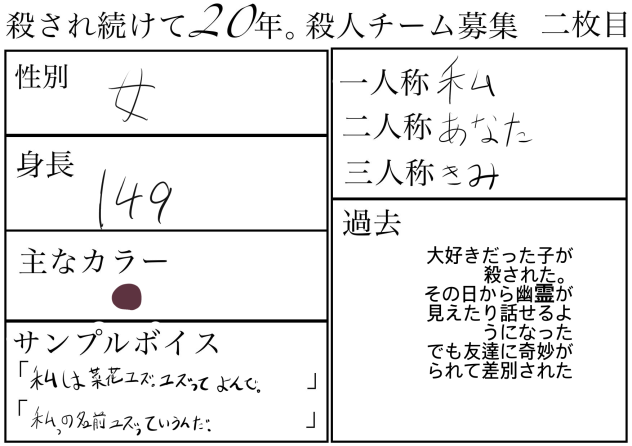 殺され続けて20年。殺人チーム募集 二枚目
性別 女
身長 149
主なカラー
サンプルボイス
「私は菜花ユズ。ユズってよんで。」
「私っの名前ユズっていうんだ。」
一人称 私
二人称 あなた
三人称 きみ
過去
大好きだった子が
殺された。
その日から幽霊が
見えたり話せるよ
うになった
でも友達に奇妙が
られて差別された